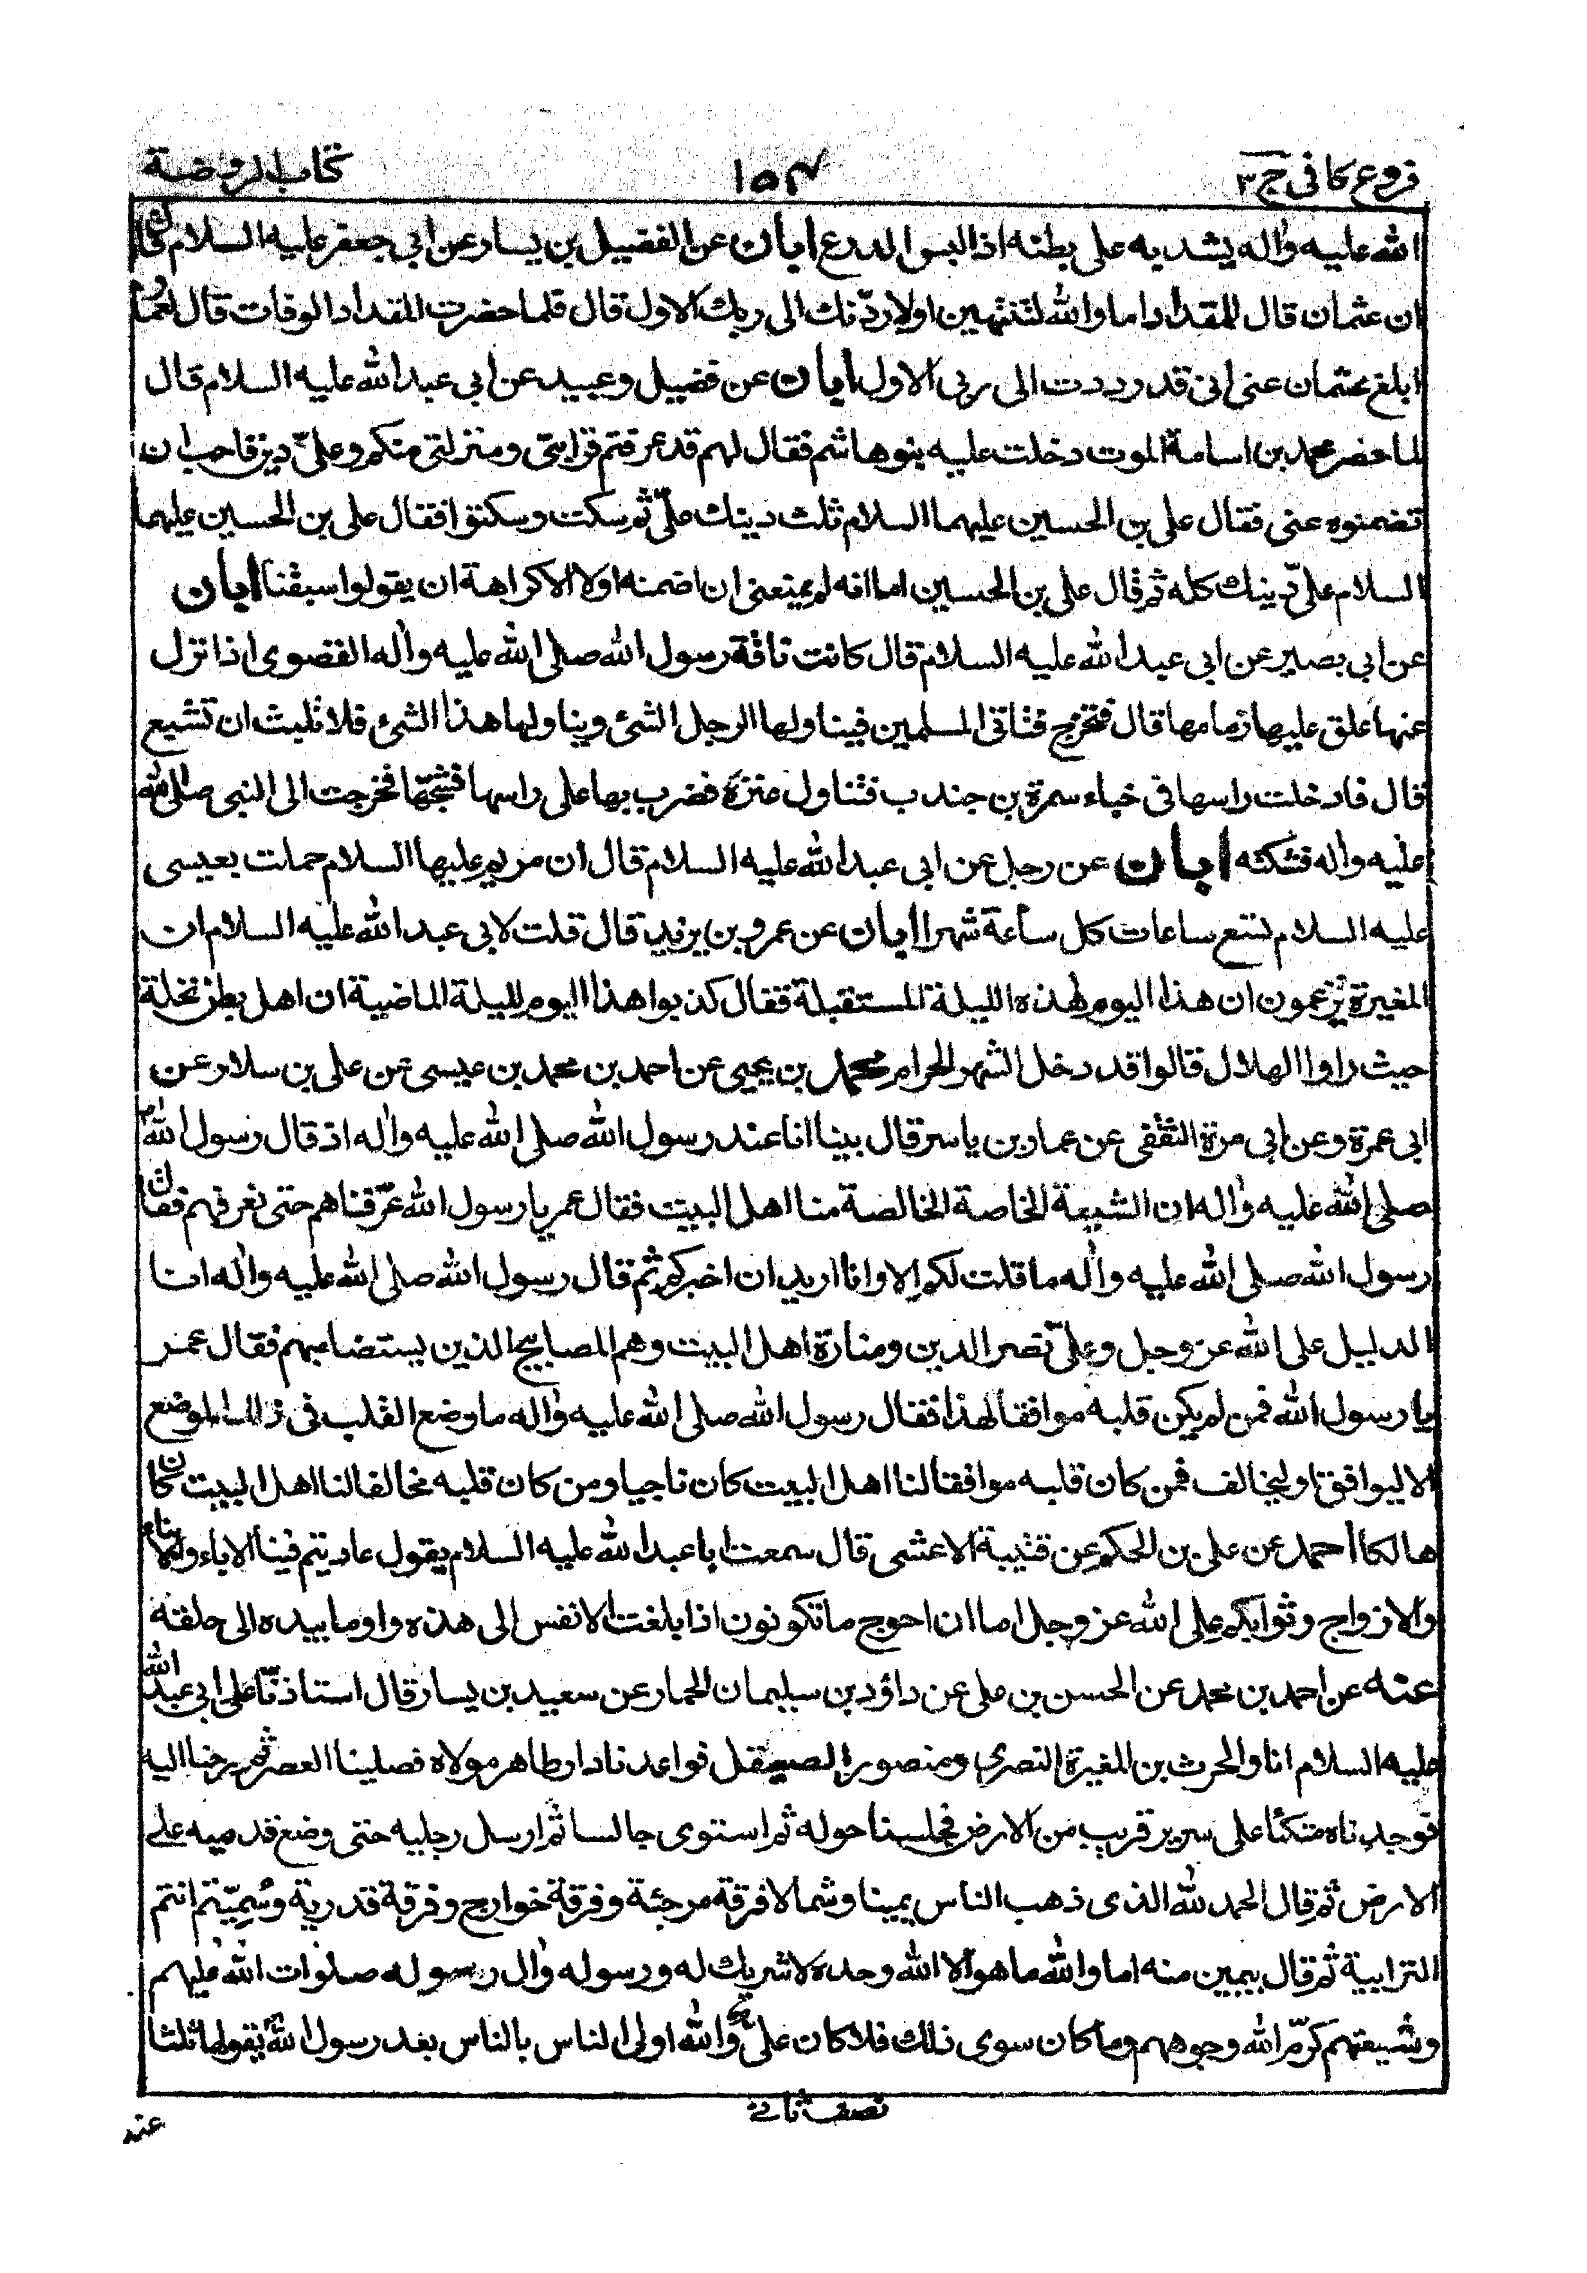 فروع كافى ج ٣
١٥٤
كتاب الروضة
الله عليه واله يشد به على بطنه اذا لبس الدرع ابان عن الفضيل بن يسار عن ابي جعفر عليه السلام قال
ان عثمان قال للمقداد اما والله لتنتهين او لاردّنك الى ربك الاول قال فلما حضرت المقداد الوفات قال لعمار
ابلغ عثمان عنى انى قد رددت الى ربى الاول ابان عن فضيل وعبيد عن ابى عبد الله عليه السلام قال
لما حضر محمد بن اسامة الموت دخلت عليه بنو هاشم فقال لهم قد عرفتم قرابتى ومنزلتى منكم وعلىّ دين فاحب ان
تضمنوه عنى فقال على بن الحسين عليهما السلام ثلث دينك علىّ ثم سكت وسكتوا فقال على بن الحسين عليهما
السلام علىّ دينك كله ثم قال على بن الحسين اما انه لم يمنعنى ان اضمنه اولا الا كراهة ان يقولوا سبقنا ابان
عن ابى بصير عن ابى عبد الله عليه السلام قال كانت ناقة رسول الله صلى الله عليه واله القصوى اذا نزل
عنها علق عليها زمامها قال فتخرج فتاتى المسلمين فيناولها الرجل الشئ ويناولها هذا الشئ فلا تلبث ان تشبع
قال فادخلت راسها فى خباء سمرة بن جندب فتناول عنزة فضرب بها على راسها فشجّها فخرجت الى النبى صلى الله
عليه واله فشكته ابان عن رجل عن ابى عبد الله عليه السلام قال ان مريم عليها السلام حملت بعيسى
عليه السلام تسع ساعات كل ساعة شهرا ابان عن عمرو بن يزيد قال قلت لابى عبد الله عليه السلام ان
المغيرة يزعمون ان هذا اليوم لهذه الليلة المستقبلة فقال كذبوا هذا اليوم لليلة الماضية ان اهل بطن نخلة
حيث راوا الهلال قالوا قد دخل الشهر الحرام محمد بن يحيى عن احمد بن محمد بن عيسى عن على بن سلار عن
ابى عمرة وعن ابى مرة الثقفى عن عمار بن ياسر قال بينا انا عند رسول الله صلى الله عليه واله اذ قال رسول الله
صلى الله عليه واله ان الشيعة الخاصة الخالصة منا اهل البيت فقال عمر يا رسول الله عرّفناهم حتى نعرفهم فقال
رسول الله صلى الله عليه واله ما قلت لكم الا وانا اريد ان اخبركم ثم قال رسول الله صلى الله عليه واله انا
الدليل على الله عز وجل وعلىّ نصر الدين ومنارة اهل البيت وهم المصابيح الذين يستضاء بهم فقال عمر
يا رسول الله فمن لم يكن قلبه موافقا لهذا فقال رسول الله صلى الله عليه واله ما وضع القلب فى ذلك الموضع
الا ليوافق او ليخالف فمن كان قلبه موافقا لنا اهل البيت كان ناجيا ومن كان قلبه مخالفا لنا اهل البيت كان
هالكا احمد عن على بن الحكم عن قتيبة الاعشى قال سمعت ابا عبد الله عليه السلام يقول عاديتم فينا الاباء والابناء
والازواج وثوابكم على الله عز وجل اما ان احوج ما تكونون اذا بلغت الانفس الى هذه واوما بيده الى حلقه
عنه عن احمد بن محمد عن الحسن بن على عن داؤد بن سليمان الحمار عن سعيد بن يسار قال استاذنّا على ابى عبد الله
عليه السلام انا والحرث بن المغيرة النصرى ومنصور الصيقل فواعدنا دار طاهر مولاه فصلينا العصر ثم رحنا اليه
فوجدناه متكئا على سرير قريب من الارض فجلسنا حوله ثم استوى جالسا ثم ارسل رجليه حتى وضع قدميه على
الارض ثم قال الحمد لله الذى ذهب الناس يمينا وشمالا فرقة مرجئة وفرقة خوارج وفرقة قدرية وسمّيتم انتم
الترابية ثم قال بيمين منه اما والله ما هو الا الله وحده لا شريك له ورسوله وال رسوله صلوات الله عليهم
وشيعتهم كرّم الله وجوههم وما كان سوى ذلك فلا كان علىّ والله اولى الناس بالناس بعد رسول الله يقولها ثلثا
نصف ثانى
عند